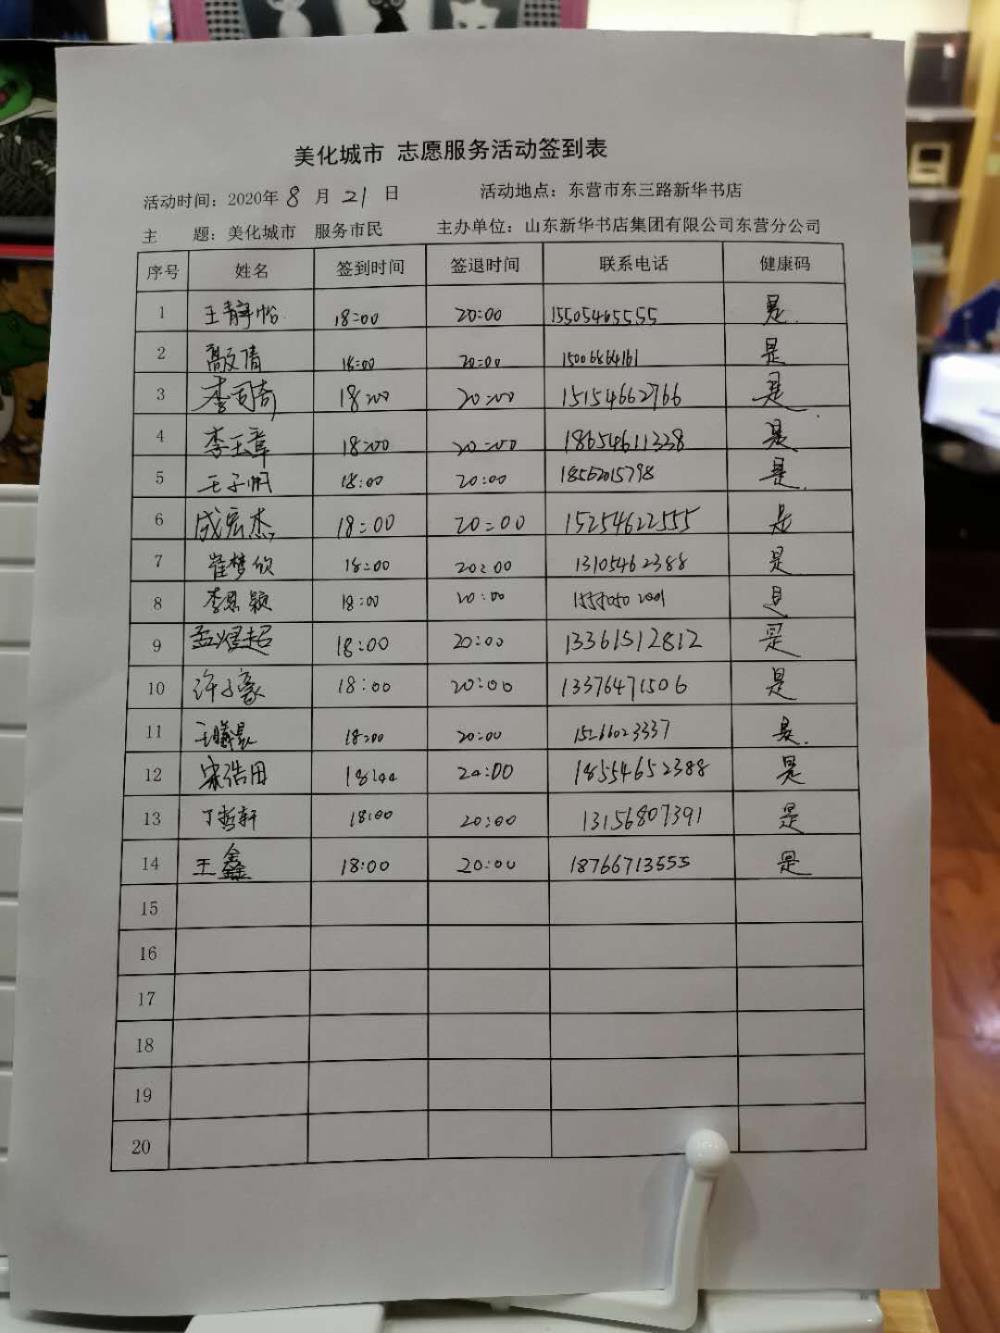 美化城市 志愿服务活动签到表
活动时间：2020年 8 月 21 日 活动地点：东营市东三路新华书店
主 题：美化城市 服务市民 主办单位：山东新华书店集团有限公司东营分公司
序号 姓名 签到时间 签退时间 联系电话 健康码
1 王静怡 18:00 20:00 15505465555 是
2 18:00 20:00 15006864161 是
3 李司奇 18:00 20:00 15154662766 是
4 李玉章 18:00 20:00 18654611338 是
5 王子帆 18:00 20:00 18562015798 是
6 成宏杰 18:00 20:00 15254622555 是
7 崔梦欣 18:00 20:00 13105462388 是
8 李思颖 18:00 20:00 是
9 孟煜超 18:00 20:00 13361512812 是
10 许子豪 18:00 20:00 13376471506 是
11 18:00 20:00 15266023337 是
12 宋浩田 18:00 20:00 18554652388 是
13 丁哲轩 18:00 20:00 13156807391 是
14 王鑫 18:00 20:00 18766713555 是
15
16
17
18
19
20